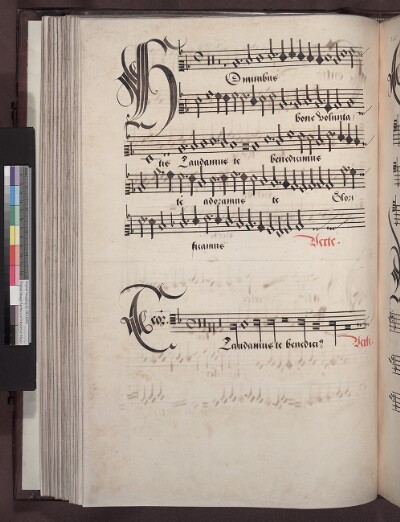 Ominibus
bone Volunta
tis Laudamus te benedicimus
te adoramus te Glori
ficamus Verte.
Teor.
Laudamus te benedici⁹ Verte